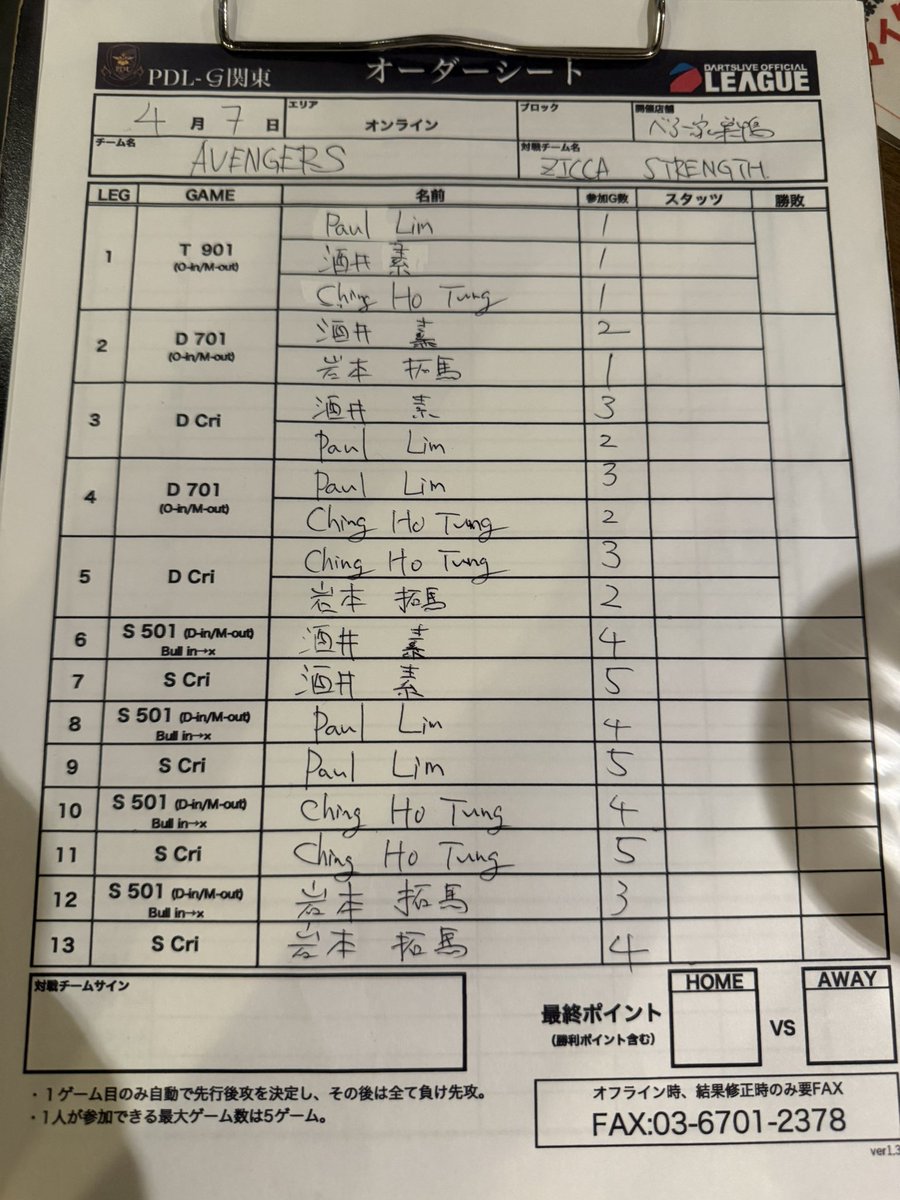 PDL-G関東 オーダーシート DARTSLIVE OFFICIAL LEAGUE
4月7日 エリア オンライン ブロック 開催店舗
チーム名 AVENGERS 対戦チーム名 ZICCA STRENGTH
LEG GAME 名前 参加G数 スタッツ 勝敗
1 T 901 (O-in/M-out) Paul Lim 1
酒井 素 1
Ching Ho Tung 1
2 D 701 (O-in/M-out) 酒井 素 2
岩本 拓馬 1
3 D Cri 酒井 素 3
Paul Lim 2
4 D 701 (O-in/M-out) Paul Lim 3
Ching Ho Tung 2
5 D Cri Ching Ho Tung 3
岩本 拓馬 2
6 S 501 (D-in/M-out) Bull in→× 酒井 素 4
7 S Cri 酒井 素 5
8 S 501 (D-in/M-out) Bull in→× Paul Lim 4
9 S Cri Paul Lim 5
10 S 501 (D-in/M-out) Bull in→× Ching Ho Tung 4
11 S Cri Ching Ho Tung 5
12 S 501 (D-in/M-out) Bull in→× 岩本 拓馬 3
13 S Cri 岩本 拓馬 4
対戦チームサイン
最終ポイント (勝利ポイント含む) HOME VS AWAY
・1ゲーム目のみ自動で先行後攻を決定し、その後は全て負け先攻。
・1人が参加できる最大ゲーム数は5ゲーム。
オフライン時、結果修正時のみ要FAX
FAX:03-6701-2378
ver1.3